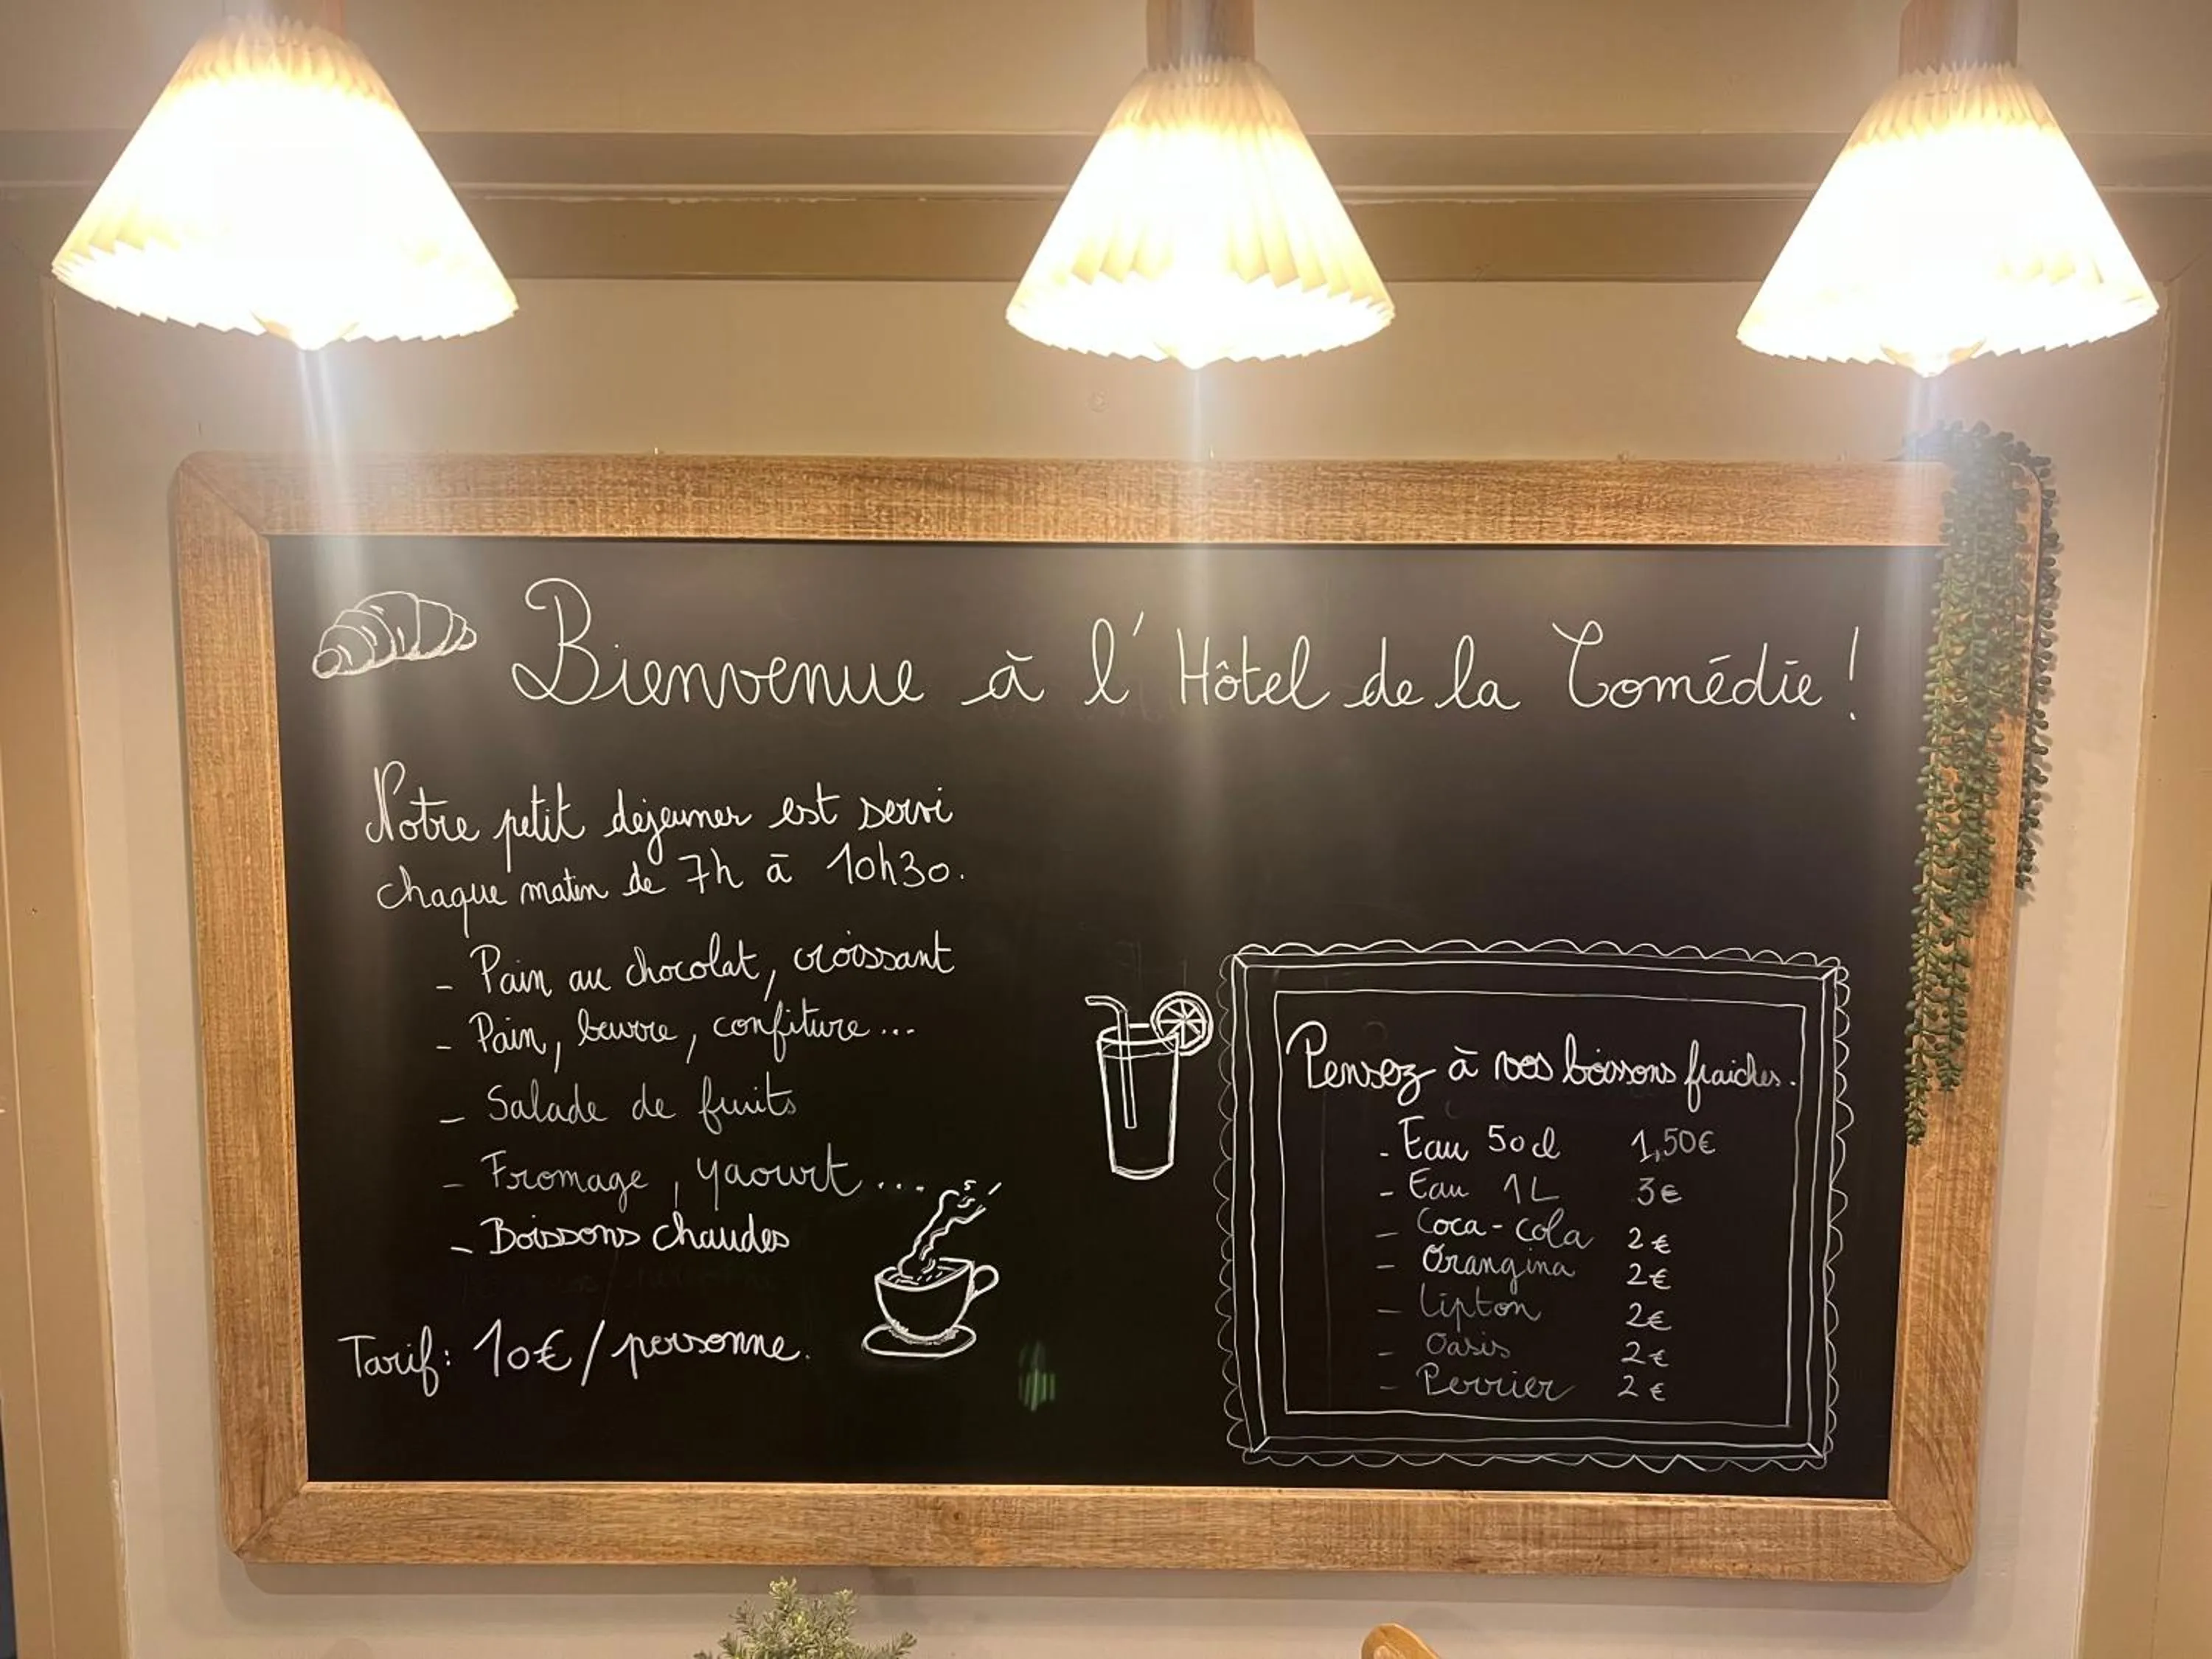 Bienvenue à l'Hôtel de la Comédie !
Notre petit déjeuner est servi
chaque matin de 7h à 10h30.
- Pain au chocolat, croissant
- Pain, beurre, confiture...
- Salade de fruits
- Fromage, yaourt...
- Boissons chaudes
Tarif: 10€/personne.
Pensez à vos boissons fraiches.
- Eau 50cl 1,50€
- Eau 1L 3€
- Coca-cola 2€
- Orangina 2€
- Lipton 2€
- Oasis 2€
- Perrier 2€